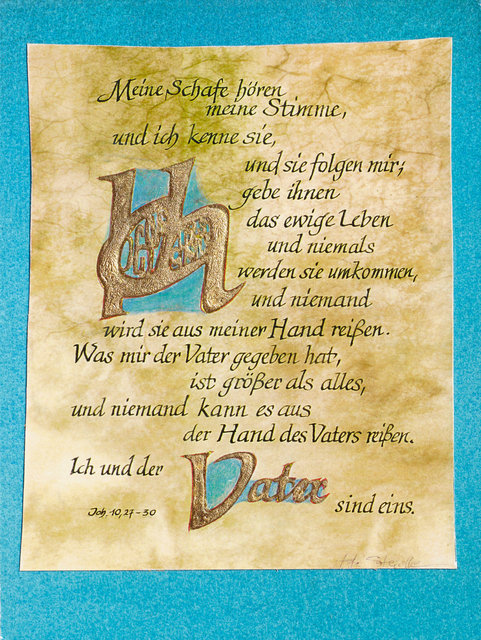 Meine Schafe hören
meine Stimme,
und ich kenne sie,
und sie folgen mir;
gebe ihnen
das ewige Leben
und niemals
werden sie umkommen,
und niemand
wird sie aus meiner Hand reißen.
Was mir der Vater gegeben hat,
ist größer als alles,
und niemand kann es aus
der Hand des Vaters reißen.
Ich und der Vater sind eins.
Joh. 10,27-30